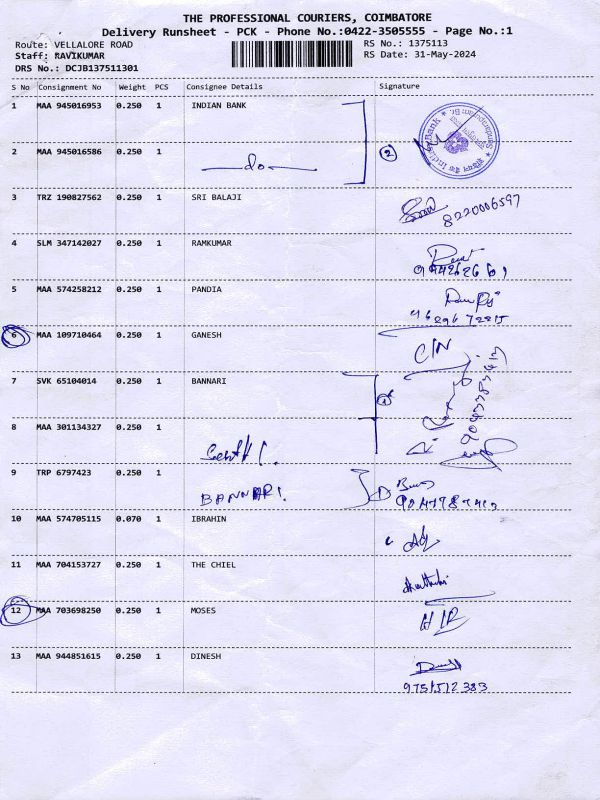 THE PROFESSIONAL COURIERS, COIMBATORE
Delivery Runsheet - PCK - Phone No.:0422-3505555 - Page No.:1
Route: VELLALORE ROAD
Staff: RAVIKUMAR
DRS No.: DCJB137511301
RS No.: 1375113
RS Date: 31-May-2024
S No Consignment No Weight PCS Consignee Details Signature
1 MAA 945016953 0.250 1 INDIAN BANK
2 MAA 945016586 0.250 1 do
2
3 TRZ 190827562 0.250 1 SRI BALAJI
8220006597
4 SLM 347142027 0.250 1 RAMKUMAR
5 MAA 574258212 0.250 1 PANDIA
6 MAA 109710464 0.250 1 GANESH
7 SVK 65104014 0.250 1 BANNARI
8 MAA 301134327 0.250 1
9 TRP 6797423 0.250 1 BANNARI.
10 MAA 574705115 0.070 1 IBRAHIN
11 MAA 704153727 0.250 1 THE CHIEL
12 MAA 703698250 0.250 1 MOSES
13 MAA 944851615 0.250 1 DINESH
9751512383